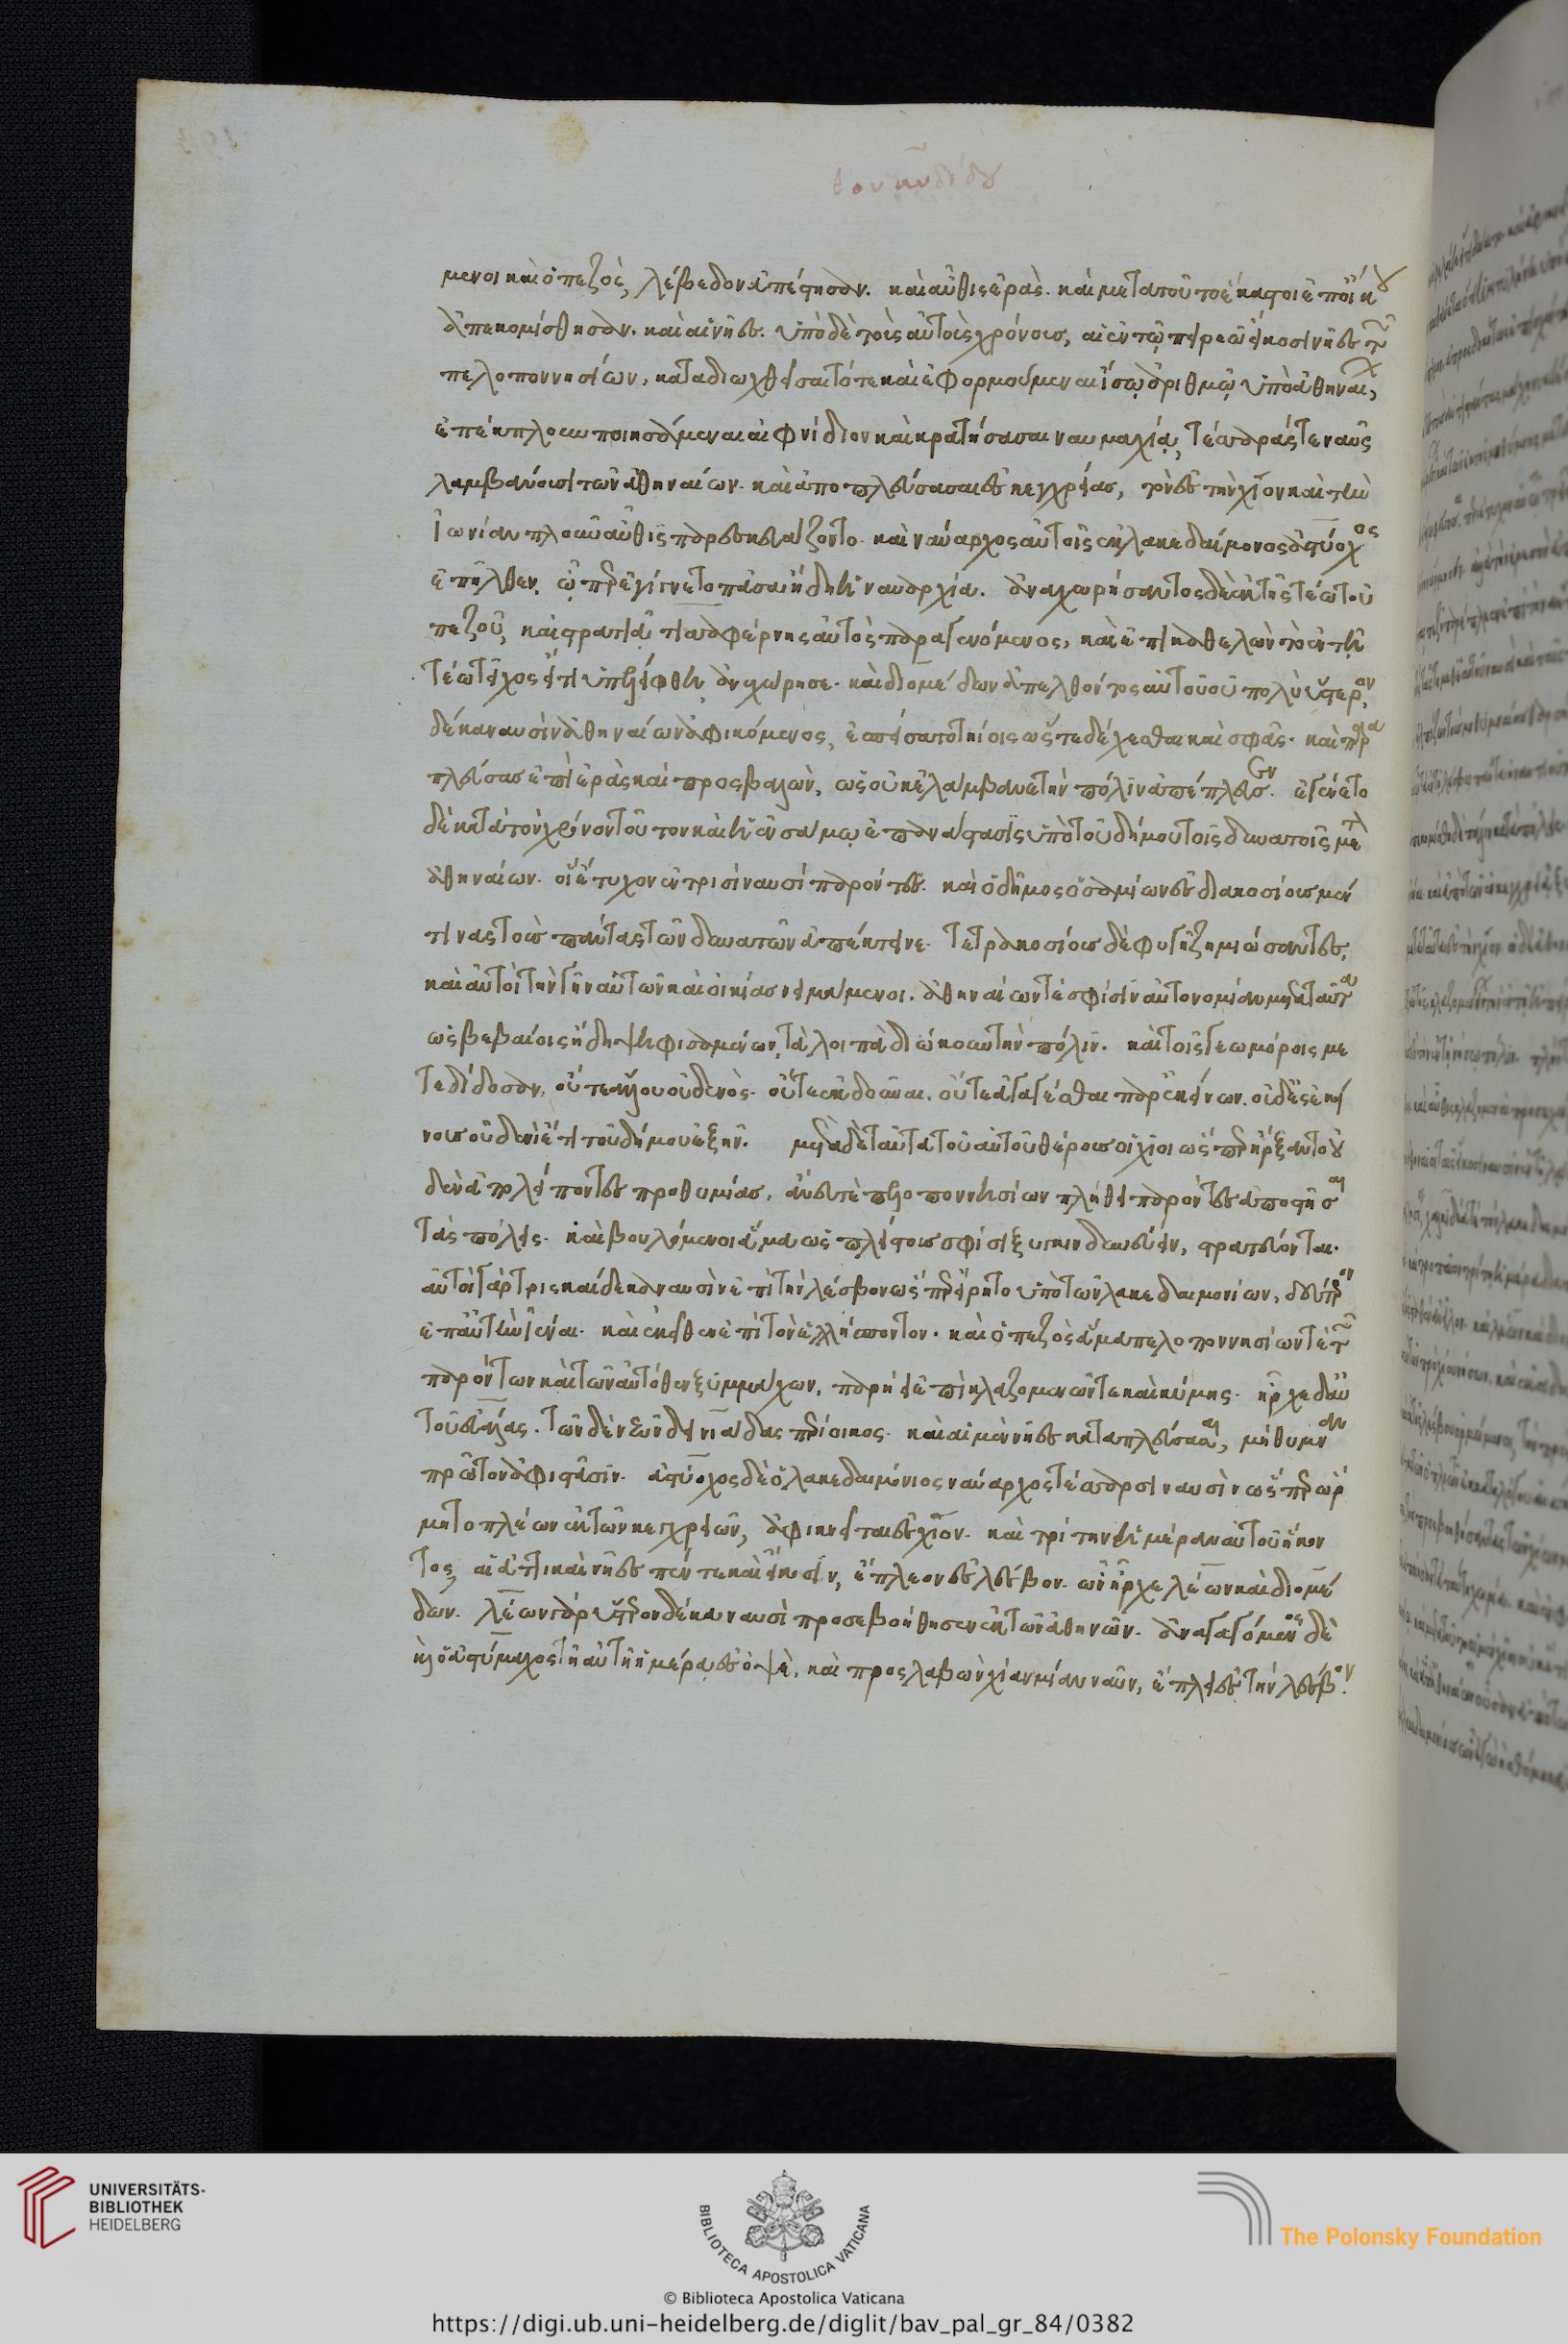 θουκυδίδου
μενοι καὶ ὁ πεζὸς, λέβεδον ἀπέστησαν. καὶ αὖθις ἐράς. καὶ μετὰ τοῦτο ἕκαστοι ἐπ' οἴκου
ἀπεκομίσθησαν. καὶ αἱ νῆες. ὑπὸ δὲ τοὺς αὐτοὺς χρόνους, αἱ ἐν τῷ πειρεῶ εἴκοσι νῆες τῶν
πελοποννησίων, καταδιωχθεῖσαι τότε καὶ ἐφορμούμεναι ἴσῳ ἀριθμῷ ὑπὸ ἀθηναίων,
ἐπέκπλουν ποιησάμεναι αἰφνίδιον καὶ κρατήσασαι ναυμαχίᾳ, τέσσαράς τε ναῦς
λαμβάνουσι τῶν ἀθηναίων. καὶ ἀποπλεύσασαι ἐς κεγχρείας, τὸν ἐς τὴν χῖον καὶ τὴν
ἰωνίαν πλοῦν αὖθις παρεσκευάζοντο. καὶ ναύαρχος αὐτοῖς ἐκ λακεδαίμονος ἀστύοχος
ἐπῆλθεν, ᾧπερ ἐγίγνετο πᾶσα ἤδη ἡ ναυαρχία. ἀναχωρήσαντος δὲ ἐκ τῆς τέω τοῦ
πεζοῦ, καὶ στρατιᾷ τισσαφέρνης αὐτὸς παραγενόμενος, καὶ ἐπικαθελὼν τὸ ἐν τῇ
τέω τεῖχος εἴ τι ὑπελείφθη, ἀνεχώρησε. καὶ διομέδων ἀπελθόντος αὐτοῦ οὐ πολὺ ὕστερον,
δέκα ναυσὶν ἀθηναίων ἀφικόμενος, ἐσπείσατο τηίοις ὥστε δέχεσθαι καὶ σφᾶς. καὶ παρα
πλεύσας ἐπὶ ἐρὰς καὶ προσβαλὼν, ὡς οὐκ ἐλάμβανε τὴν πόλιν ἀπέπλευσεν. ἐγένετο
δὲ κατὰ τὸν χρόνον τοῦτον καὶ ἡ ἐν σάμῳ ἐπανάστασις ὑπὸ τοῦ δήμου τοῖς δυνατοῖς μετὰ
ἀθηναίων. οἳ ἔτυχον ἐν τρισὶ ναυσὶ παρόντες. καὶ ὁ δῆμος ὁ σαμίων ἐς διακοσίους μέν
τινας τοὺς πάντας τῶν δυνατῶν ἀπέκτεινε. τετρακοσίους δὲ φυγῇ ζημιώσαντες,
καὶ αὐτοὶ τὴν γῆν αὐτῶν καὶ οἰκίας νειμάμενοι. ἀθηναίων τέ σφισιν αὐτονομίαν μετὰ ταῦτα
ὡς βεβαίοις ἤδη ψηφισαμένων, τὰ λοιπὰ διώκουν τὴν πόλιν. καὶ τοῖς γεωμόροις με
τεδίδοσαν, οὔτε ἄλλου οὐδενός. οὔτε ἐκδοῦναι. οὔτε ἀγαγέσθαι παρ' ἐκείνων. οὐδ' ἐς ἐκεί
νους οὐδενὶ ἔτι τοῦ δήμου ἐξῆν. μετὰ δὲ ταῦτα τοῦ αὐτοῦ θέρους οἱ χῖοι ὥσπερ ἤρξαντο οὐ
δὲν ἀπολείποντες προθυμίας, ἄνευ τε πελοποννησίων πλήθει παρόντες ἀποστῆσαι
τὰς πόλεις. καὶ βουλόμενοι ἅμα ὡς πλείστους σφίσι ξυγκινδυνεύειν, στρατεύονται.
αὐτοὶ γὰρ τρισκαίδεκα ναυσὶν ἐπὶ τὴν λέσβον ὥσπερ εἴρητο ὑπὸ τῶν λακεδαιμονίων, δεύτερον
ἐπ' αὐτὴν ἰέναι. καὶ ἐκεῖθεν ἐπὶ τὸν ἑλλήσποντον. καὶ ὁ πεζὸς ἅμα πελοποννησίων τε τῶν
παρόντων καὶ τῶν αὐτόθεν ξυμμάχων, παρῄει ἐπὶ κλαζομενῶν τε καὶ κύμης. ἦρχε δ' αὐ
τοῦ εὐάλας. τῶν δὲ νεῶν δεινιάδας περίοικος. καὶ αἱ μὲν νῆες καταπλεύσασαι, μήθυμναν
πρῶτον ἀφιστᾶσιν. ἀστύοχος δὲ ὁ λακεδαιμόνιος ναύαρχος τέσσαρσι ναυσὶν ὥσπερ ὥρ
μητο πλέων ἐκ τῶν κεγχρειῶν, ἀφικνεῖται ἐς χῖον. καὶ τρίτην ἡμέραν αὐτοῦ ἥκον
τος, αἱ ἀττικαὶ νῆες πέντε καὶ εἴκοσιν, ἔπλεον ἐς λέσβον. ὧν ἦρχε λέων καὶ διομέ
δων. λέων γὰρ ὕστερον δέκα ναυσὶ προσεβοήθησεν ἐκ τῶν ἀθηνῶν. ἀναγαγόμενος δὲ
καὶ ὁ ἀστύοχος τῇ αὐτῇ ἡμέρᾳ ἐς ὀψὲ, καὶ προσλαβὼν χίαν μίαν ναῦν, ἔπλει ἐς τὴν λέσβον.
UNIVERSITÄTS-
BIBLIOTHEK
HEIDELBERG
BIBLIOTECA APOSTOLICA VATICANA
© Biblioteca Apostolica Vaticana
The Polonsky Foundation
https://digi.ub.uni-heidelberg.de/diglit/bav_pal_gr_84/0382